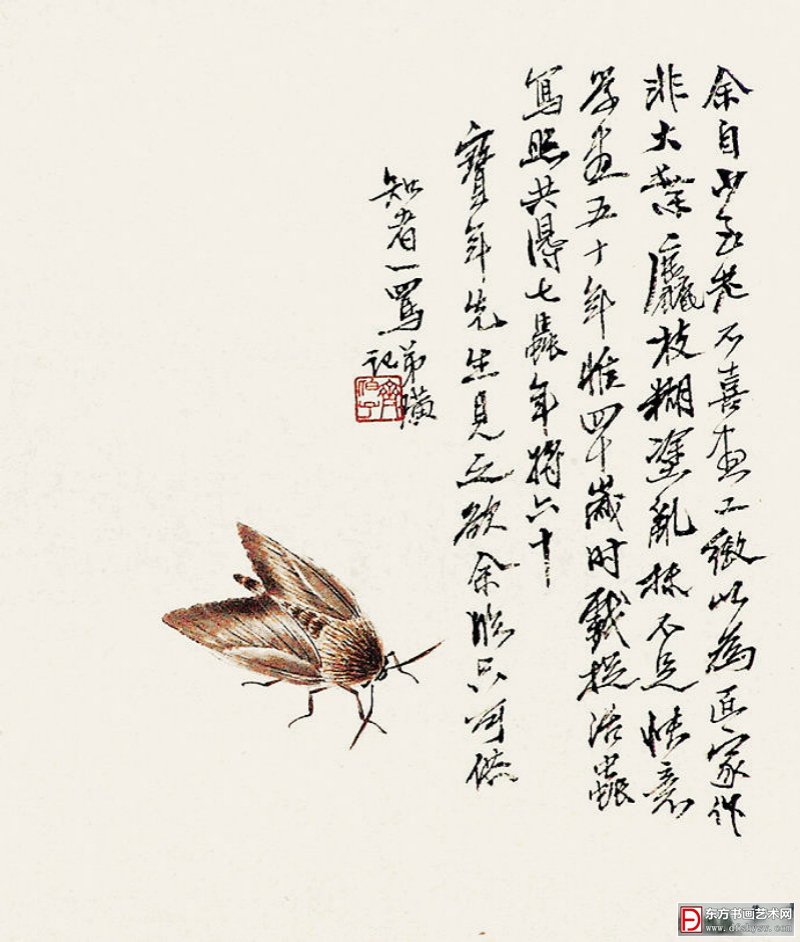 余自少至老不喜画工致以为匠家作
非大叶麤枝糊塗乱抹不足快意
学画五十年惟四十岁时戏捉活蟲
写照共得七蟲年将六十
寶年先生見之欲余临只可供
知者一骂弟璜
记
東方书画艺术网
www.dfshysw.com